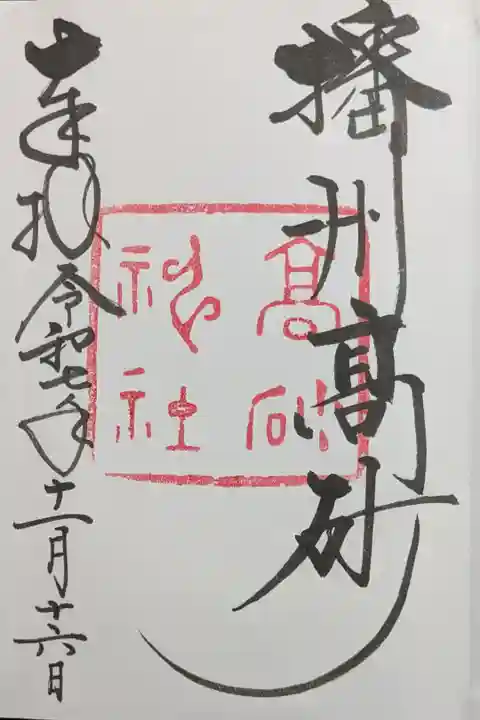 播州高砂
高砂
神社
奉拝
令和七年十一月十六日